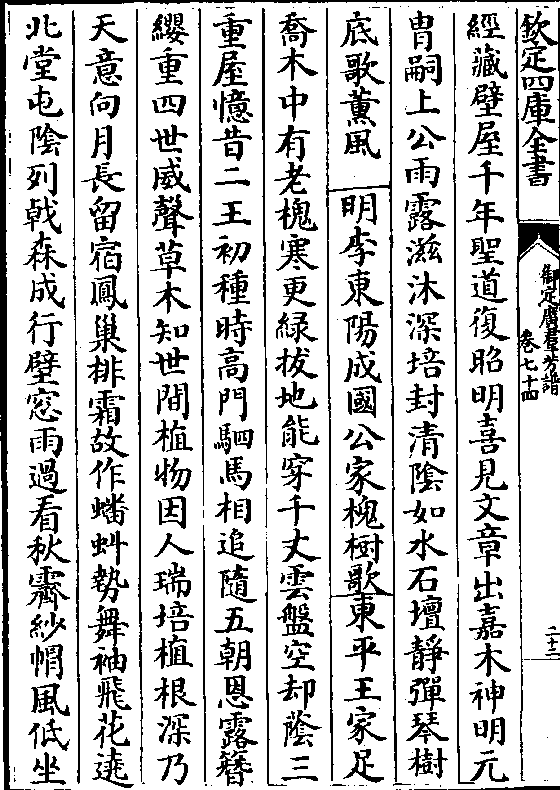 欽定四庫全書
御定廣羣芳譜
卷七十四
二十三
經藏壁屋千年聖道復昭明喜見文章出嘉木神明元
胄嗣上公雨露滋沐深培封清陰如水石壇靜彈琴樹
底歌薰風 明李東陽成國公家槐樹歌東平王家足
喬木中有老槐寒更緑拔地能穿千丈雲盤空却蔭三
重屋憶昔二王初種時高門駟馬相追隨五朝恩露簪
纓重四世威聲草木知世間植物因人瑞培植根深乃
天意向月長留宿鳳巢排霜故作蟠虯勢舞袖飛花遶
北堂屯陰列戟森成行壁窓雨過看秋霽紗帽風低坐